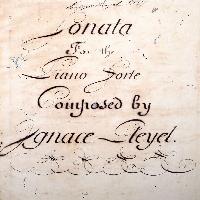 Sonata
For the
Piano Forte
Composed by
Ignace Pleyel.